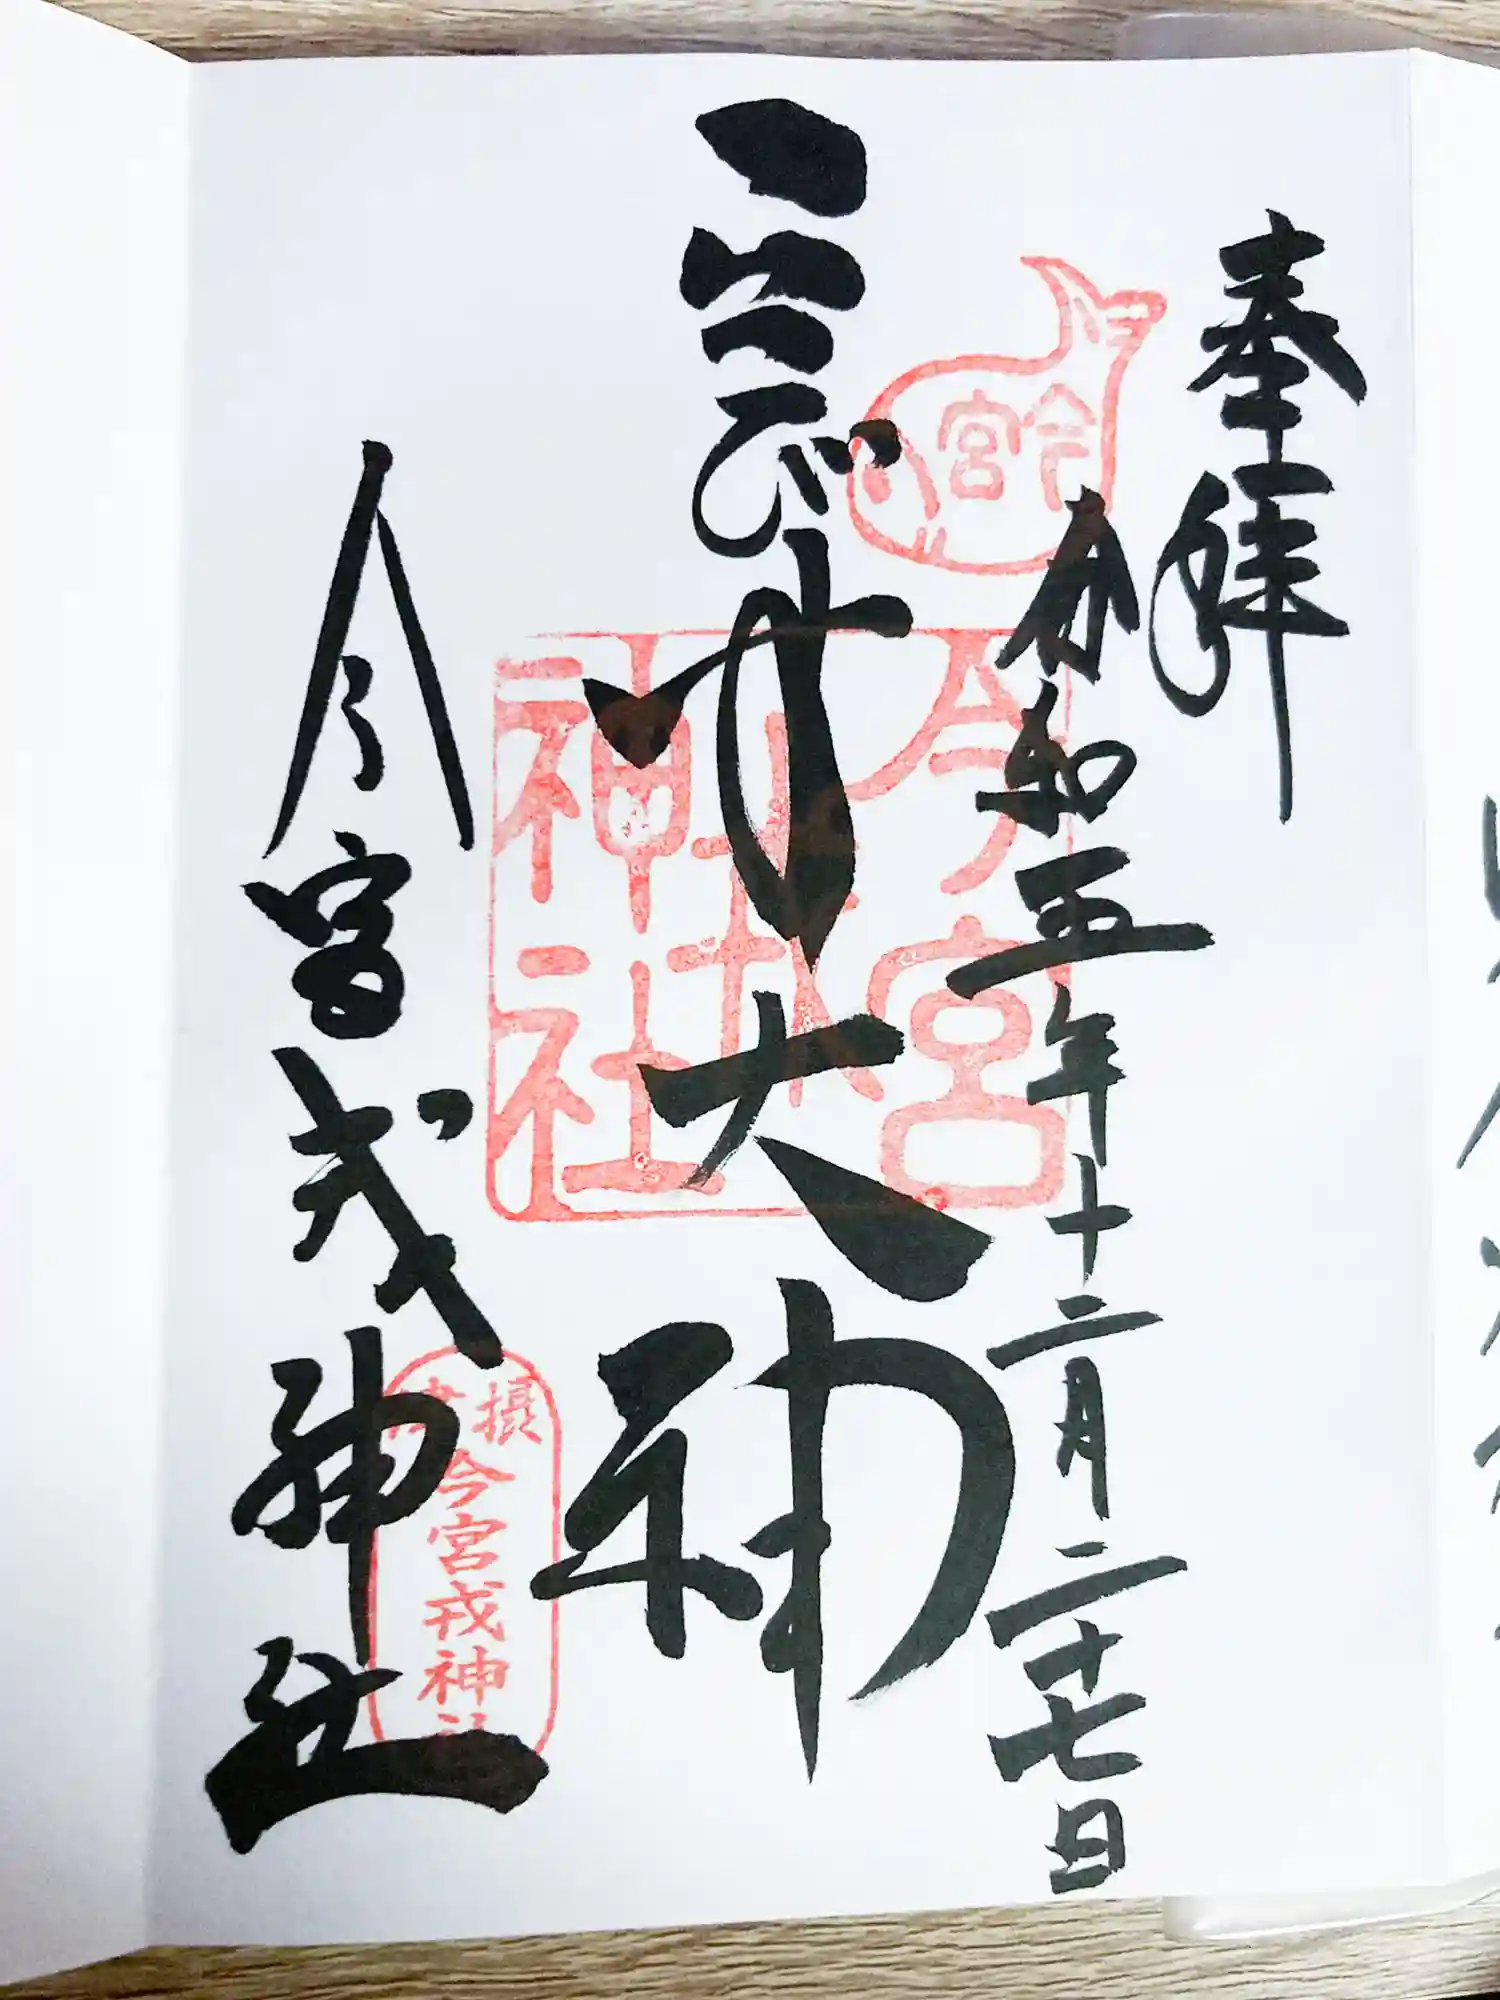 奉拝
令和五年十二月二十七日
ゑびす大神
今宮戎神社
今宮
今宮戎神社
摂
今宮戎神